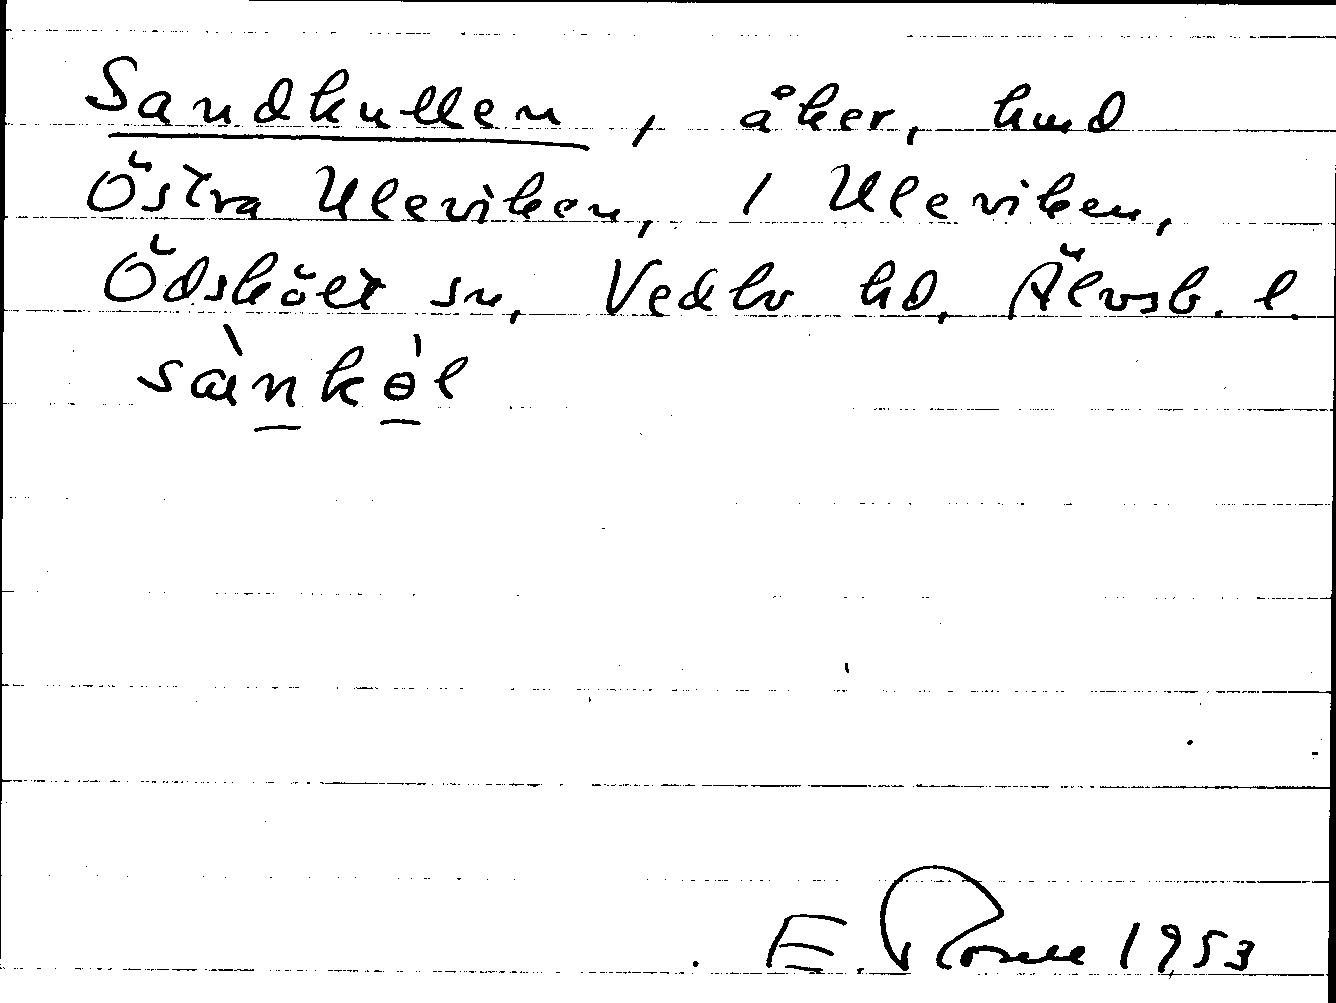 Sandkullen, åker, hmd
Östra Uleviken, 1 Uleviken,
Ödsköĺt sn, Vedbo hd, Älvsb. l.
sànkɵ̀l
E. 1953